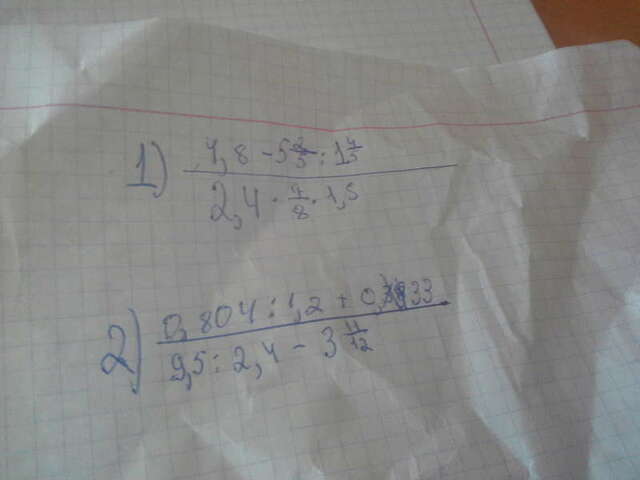 1) 7,8 - 5 2/3 : 1 4/5
2,4 · 7/8 · 1,5
2) 0,804 : 1,2 + 0,33
9,5 : 2,4 - 3 11/12